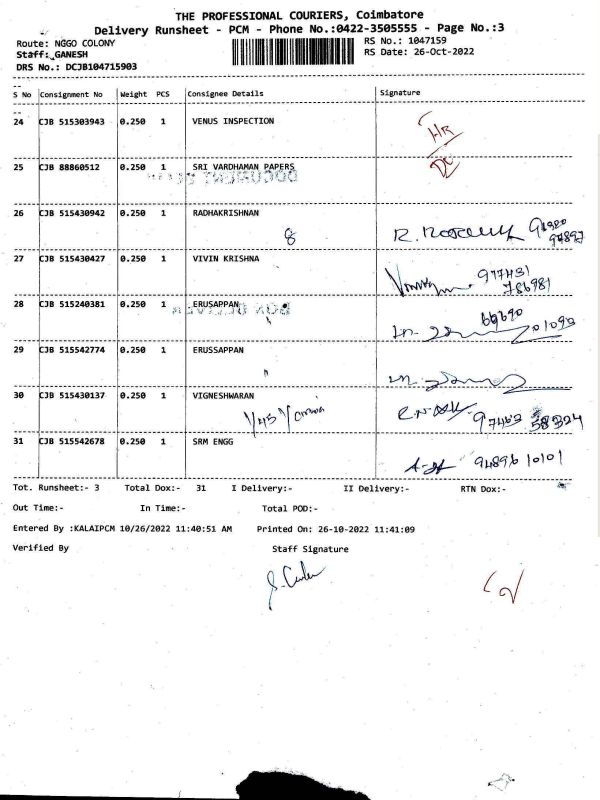 THE PROFESSIONAL COURIERS, Coimbatore
Delivery Runsheet - PCM - Phone No.:0422-3505555 - Page No.:3
Route: NGGO COLONY
RS No.: 1047159
Staff: GANESH
RS Date: 26-Oct-2022
DRS No.: DCJB104715903
S No Consignment No Weight PCS Consignee Details Signature
24 CJB 515303943 0.250 1 VENUS INSPECTION
25 CJB 88860512 0.250 1 SRI VARDHAMAN PAPERS
26 CJB 515430942 0.250 1 RADHAKRISHNAN
8
27 CJB 515430427 0.250 1 VIVIN KRISHNA
977431
786981
28 CJB 515240381 0.250 1 ERUSAPPAN
29 CJB 515542774 0.250 1 ERUSSAPPAN
30 CJB 515430137 0.250 1 VIGNESHWARAN
31 CJB 515542678 0.250 1 SRM ENGG
94896 10101
Tot. Runsheet:- 3 Total Dox:- 31 I Delivery:- II Delivery:- RTN Dox:-
Out Time:- In Time:- Total POD:-
Entered By :KALAIPCM 10/26/2022 11:40:51 AM Printed On: 26-10-2022 11:41:09
Verified By Staff Signature